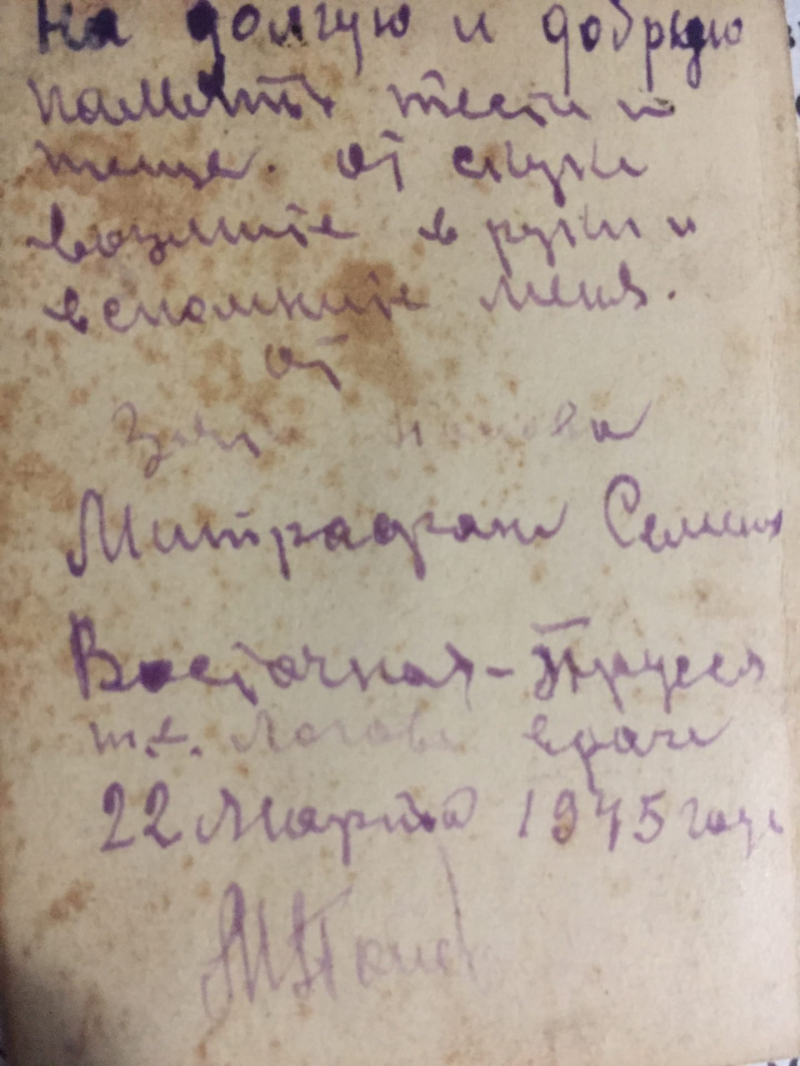 На долгую и добрую
память тести и
теще. от скуки
возмите в руки и
вспомните меня.
от
Митрафан Семен
Восточная-Пруссия
т.е. Логове врага
22 Марта 1945 года